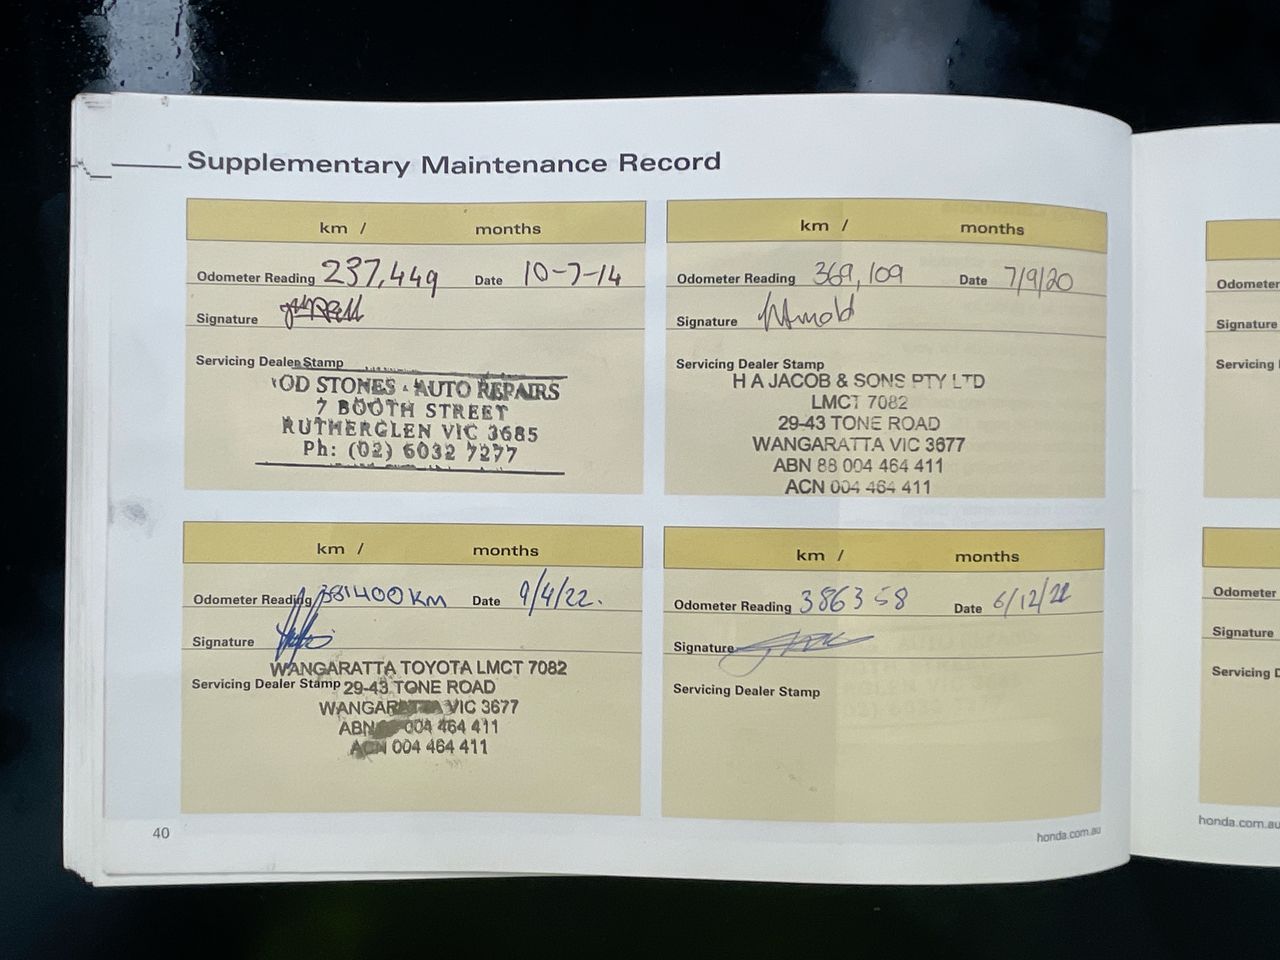 Supplementary Maintenance Record
km / months
Odometer Reading 237,449 Date 10-7-14
Signature
Servicing Dealer Stamp
OD STONES AUTO REPAIRS
7 BOOTH STREET
RUTHERGLEN VIC 3685
Ph: (02) 6032 7277
km / months
Odometer Reading 369,109 Date 7/9/20
Signature
Servicing Dealer Stamp
H A JACOB & SONS PTY LTD
LMCT 7082
29-43 TONE ROAD
WANGARATTA VIC 3677
ABN 88 004 464 411
ACN 004 464 411
km / months
Odometer Reading 381400KM Date 9/4/22.
Signature
WANGARATTA TOYOTA LMCT 7082
Servicing Dealer Stamp 29-43 TONE ROAD
WANGARATTA VIC 3677
ABN 004 464 411
ACN 004 464 411
km / months
Odometer Reading 386358 Date 6/12/22
Signature
Servicing Dealer Stamp
40
honda.com.au
Odometer
Signature
Servicing
Odometer
Signature
Servicing D
honda.com.au